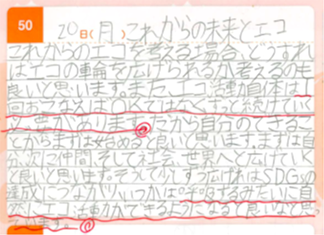 50
20日(月)これからの未来とエコ
これからのエコを考える場合、どうすれ
ばエコの輪を広げられるか考えるのも
良いと思います。また、エコ活動自体は1
回おこなえばOKではなくずっと続けていく
必要があります。だから自分のできるこ
とからまずは始めると良いと思います。まずは自
分次に仲間、そして社会、世界へと広げていく
と良いと思います。そうして少しずつ広げればSDGsの
達成につながり、いつかは呼吸するみたいに自
然にエコ活動ができるようになると良いなと思っ
ています。